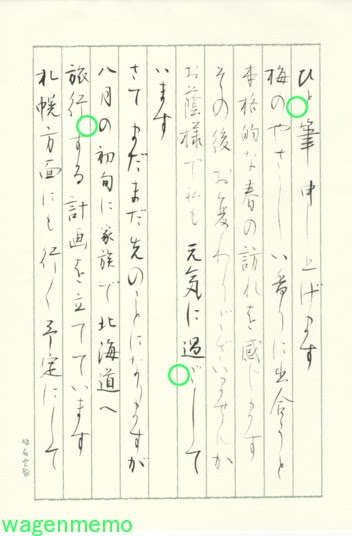 ひと筆申し上げます
梅のやさしい香りに出合うと
本格的な春の訪れを感じます
その後お変わりございませんか
お蔭様で私も元気に過ごして
います
さてまだまだ先のことになりますが
八月の初旬に家族で北海道へ
旅行する計画を立てています
札幌方面にも行く予定にして
wagenmemo